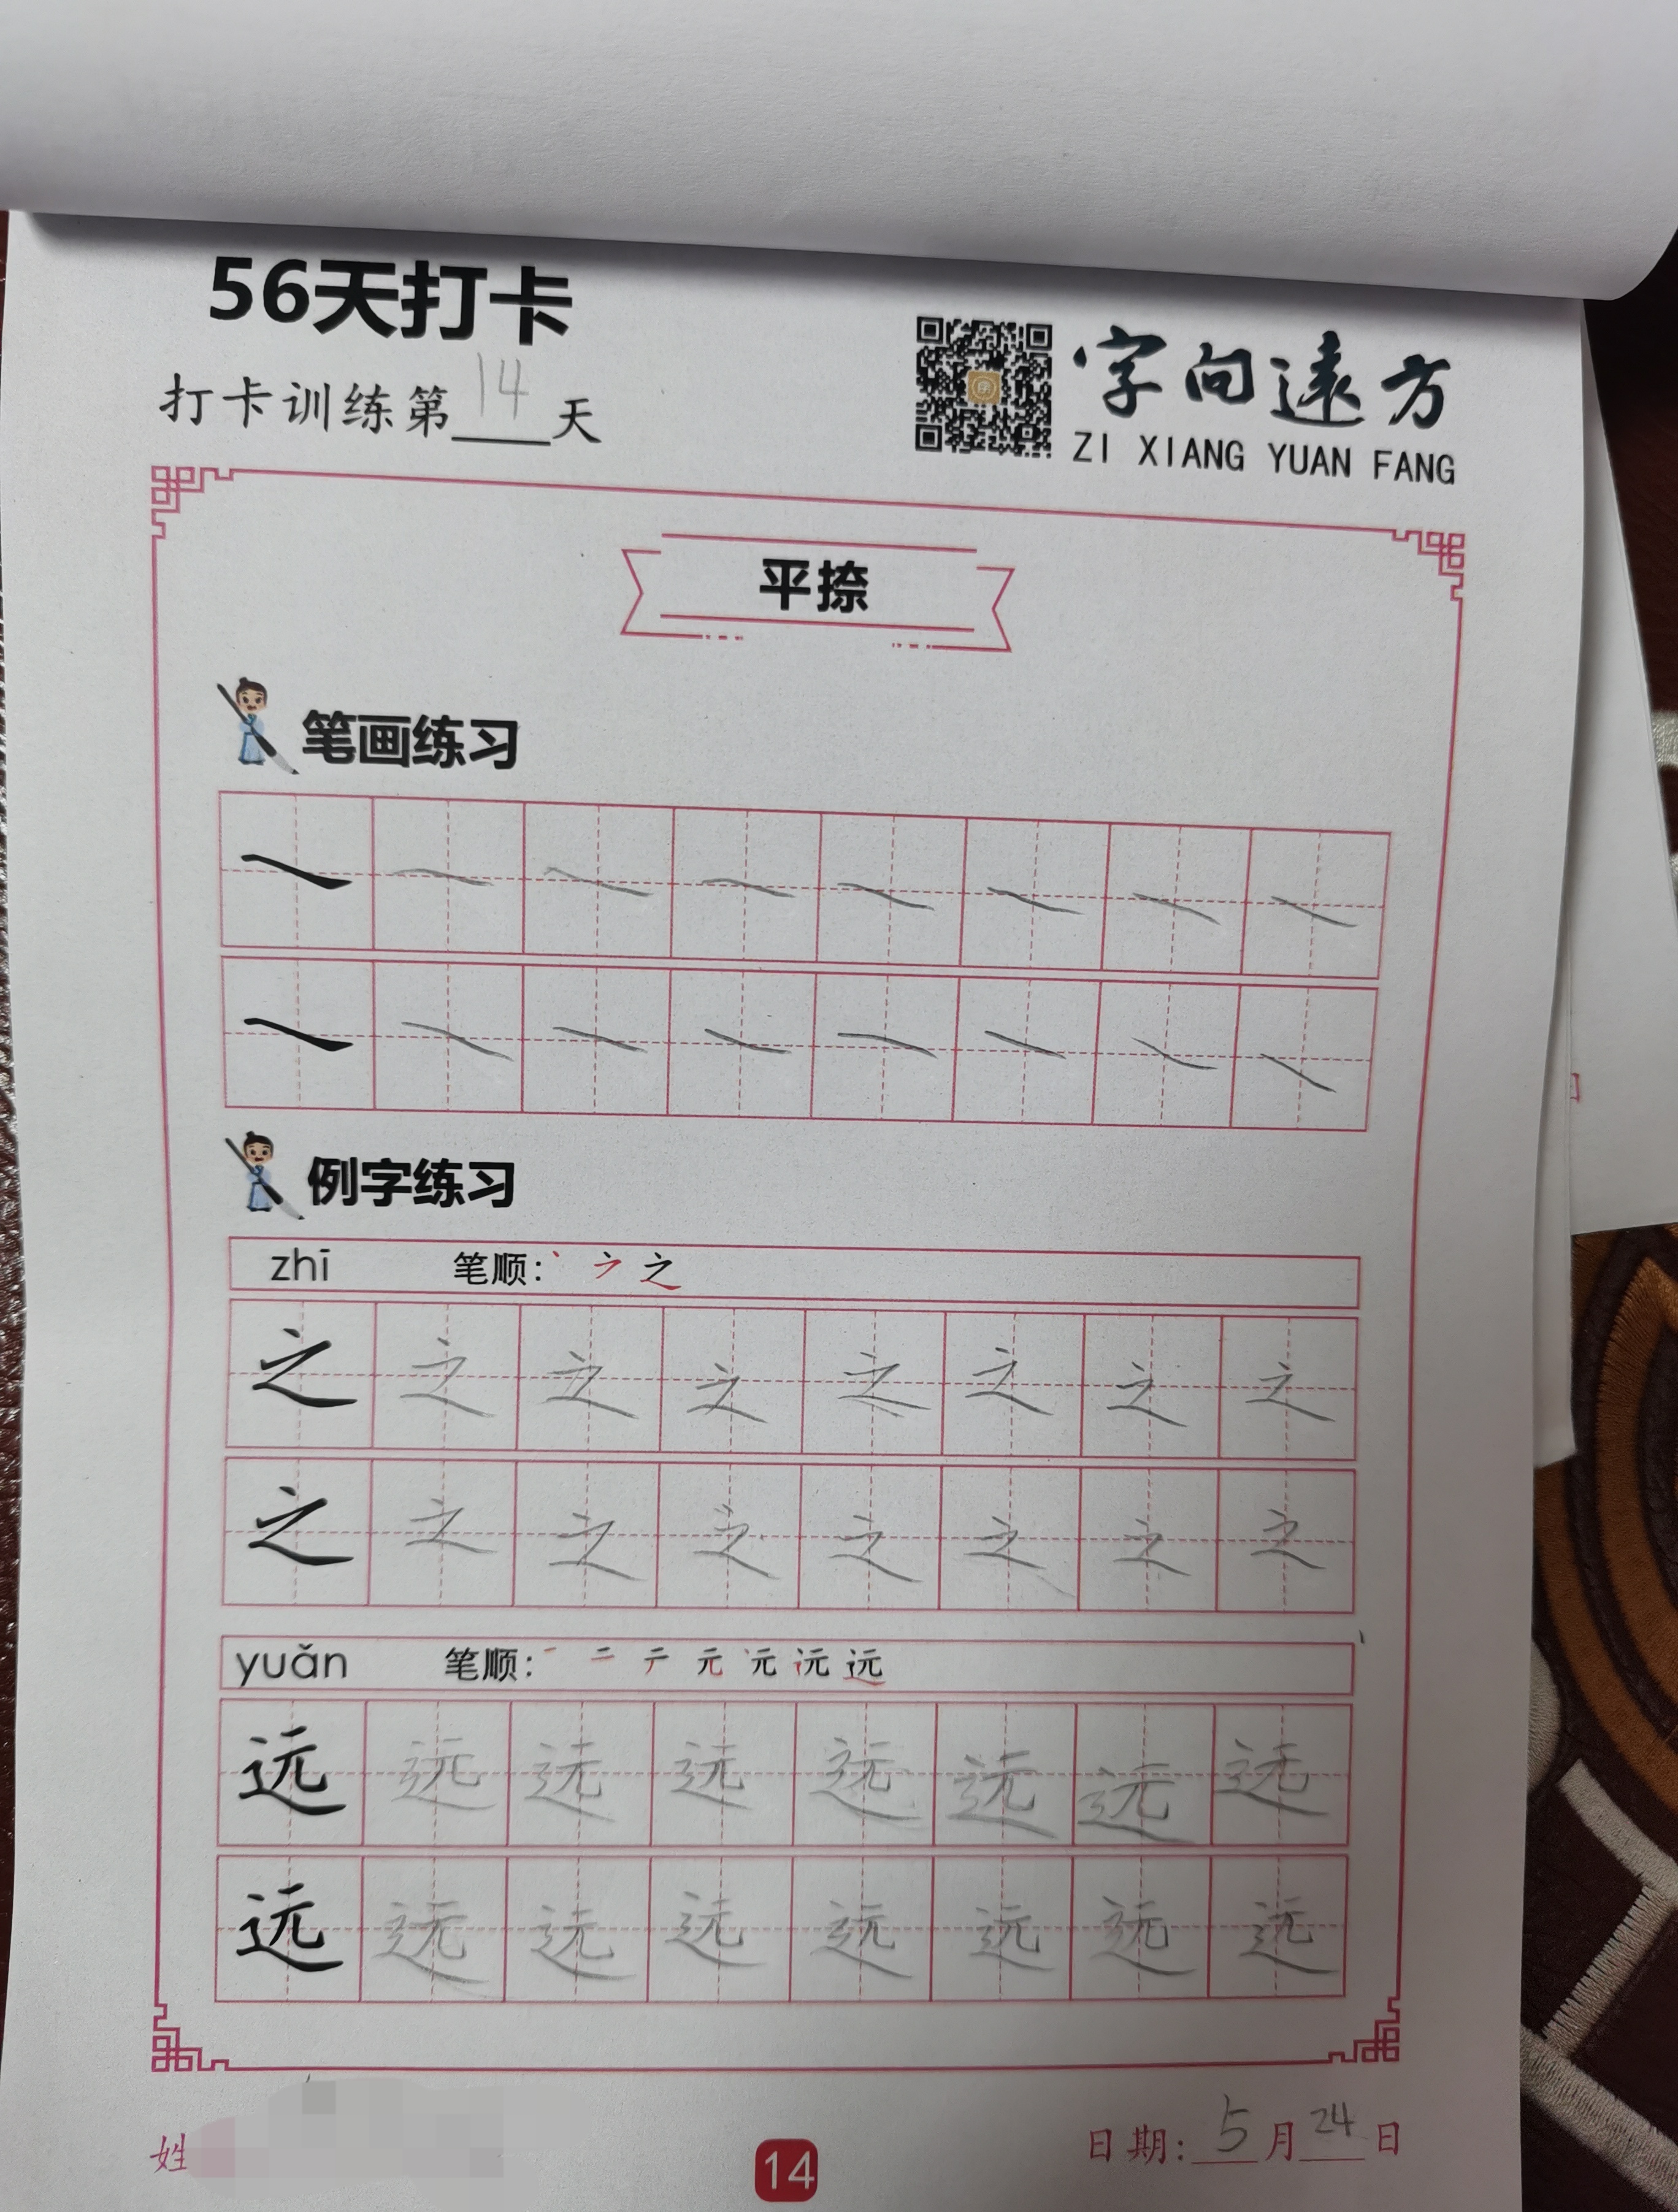 56天打卡
打卡训练第14天
字向遠方
ZI XIANG YUAN FANG
平捺
笔画练习
例字练习
zhī 笔顺: 丶 ㇇ 之
之 之 之 之 之 之 之 之
之 之 之 之 之 之 之 之
yuǎn 笔顺: 一 二 テ 元 远
远 远 远 远 远 远 远 远
远 远 远 远 远 远 远 远
姓
14
日期: 5月24日